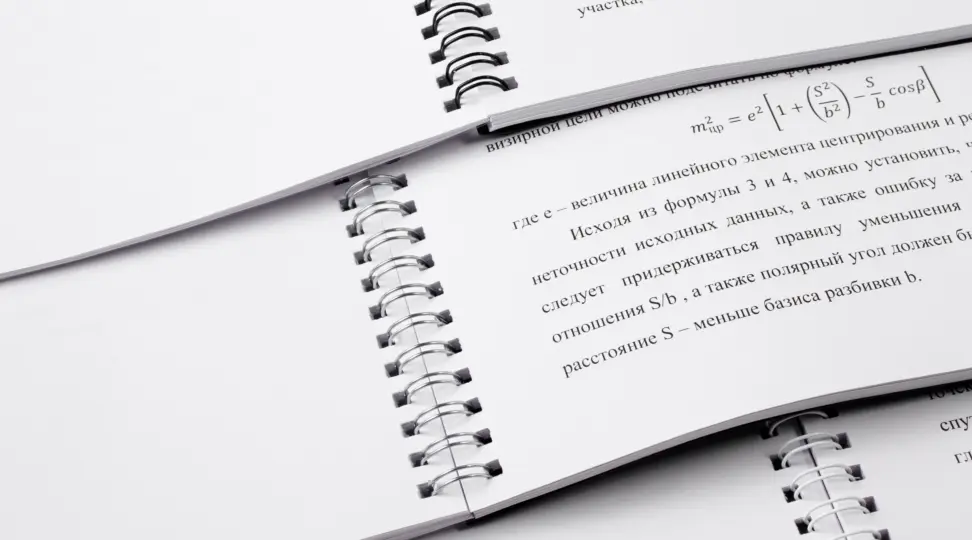 участка,
визирной цели можно подсчитать по формуле:
m²цр = e² [1 + (S²/b²) − S/b cosβ]
где e – величина линейного элемента центрирования и
Исходя из формулы 3 и 4, можно установить,
неточности исходных данных, а также ошибку за
следует придерживаться правилу уменьшения
отношения S/b , а также полярный угол должен
расстояние S – меньше базиса разбивки b.